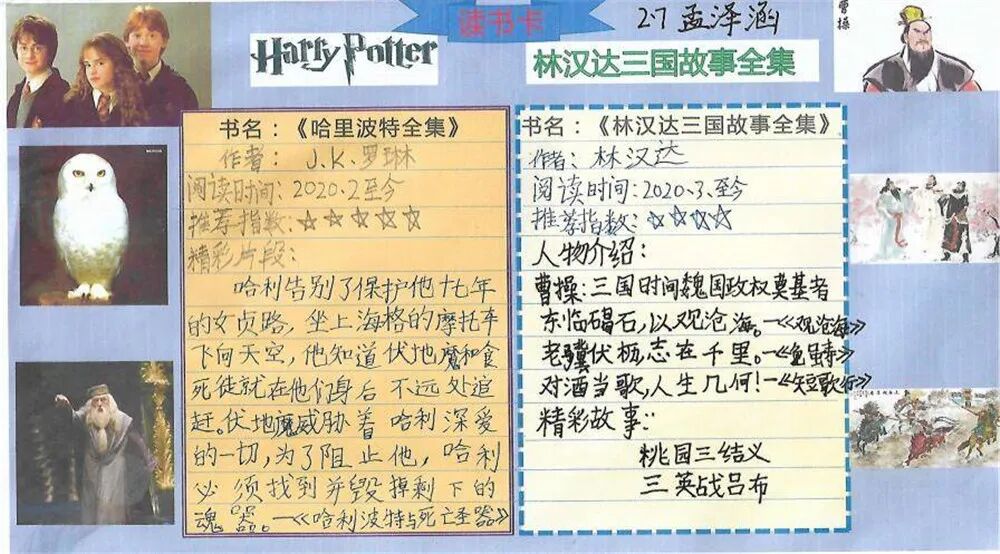 读书卡
2.7 孟泽涵
曹操
Harry Potter
林汉达三国故事全集
书名：《哈里波特全集》
作者： J.K.罗琳
阅读时间：2020.2至今
推荐指数：☆☆☆☆☆
精彩片段：
哈利告别了保护他十七年
的女贞路，坐上海格的摩托车
飞向天空，他知道伏地魔和食
死徒就在他们身后不远处追
赶。伏地魔威胁着哈利深爱
的一切，为了阻止他，哈利
必须找到并毁掉剩下的
魂器。—《哈利波特与死亡圣器》
书名：《林汉达三国故事全集》
作者：林汉达
阅读时间：2020.3.至今
推荐指数：☆☆☆☆
人物介绍：
曹操：三国时间魏国政权奠基者
东临碣石，以观沧海。—《观沧海》
老骥伏枥志在千里。—《龟虽寿》
对酒当歌，人生几何！—《短歌行》
精彩故事：
桃园三结义
三英战吕布